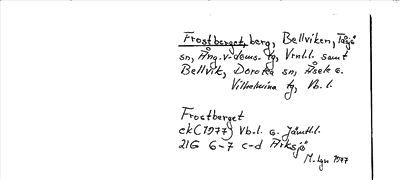 Frostberget, berg, Bellviken, Tåsjö
sn, Ång.v-doms. tg, Vrnl.l. samt
Bellvik, Dorotea sn, Åsele o.
Vilhelmina tg, Vb. l.
Frostberget
ek (1977) Vb.l. o. Jämtl.l.
21G 6-7 c-d Alksjö
M. Lgn 1977